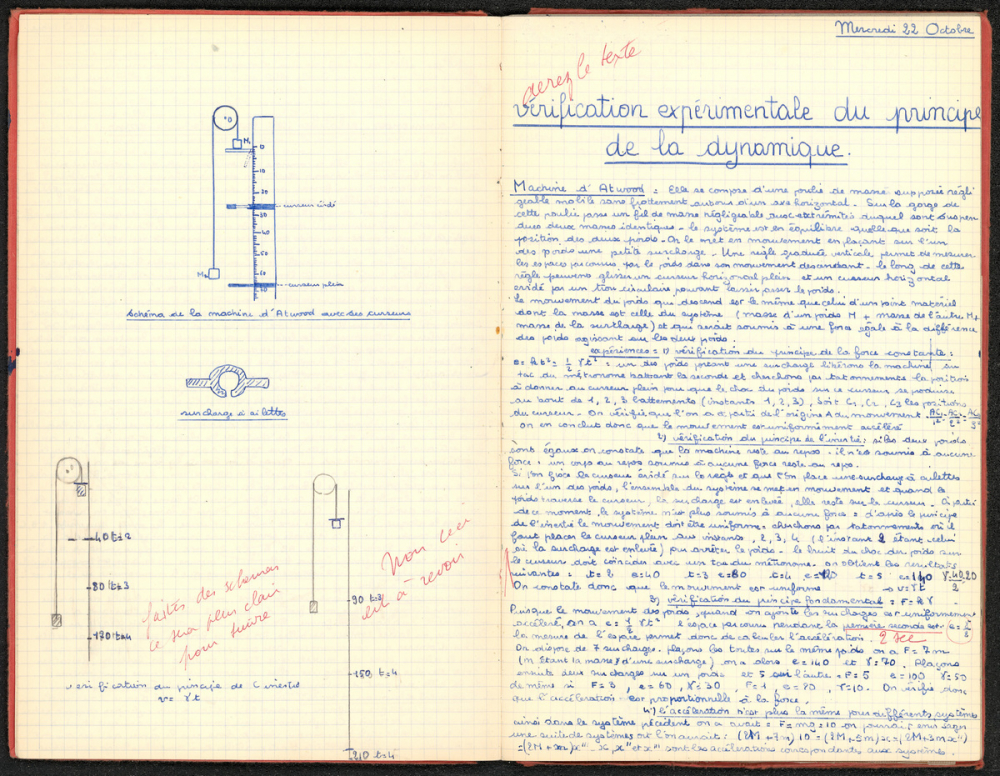 M
0
10
20
30
curseur évidé
40
50
M
60
curseur plein
schéma de la machine d'Atwood avec ses curseurs
surcharge à ailettes
40 t=2
80 t=3
120 t=4
faites des schémas
ce sera plus clair
pour suivre
vérification du principe de l'inertie
v= γt
Non ceci
est à
revoir
90 t=3
150 t=4
210 t=4
Mercredi 22 Octobre
aérez le texte
vérification expérimentale du principe
de la dynamique.
Machine d'Atwood : Elle se compose d'une poulie de masse supposée négli
geable mobile sans frottement autour d'un axe horizontal. Sur la gorge de
cette poulie passe un fil de masse négligeable aux extrémités auquel sont suspen
dues deux masses identiques. le système est en équilibre quelle que soit la
position des deux poids. On le met en mouvement en plaçant sur l'un
des poids une petite surcharge. Une règle graduée verticale permet de mesurer
les espaces parcourus par le poids dans son mouvement descendant. le long de cette
règle peuvent glisser un curseur horizontal plein et un curseur horizontal
évidé par un trou circulaire pouvant laisser passer le poids.
Le mouvement du poids qui descend est le même que celui d'un point matériel
dont la masse est celle du système (masse d'un poids M + masse de l'autre M +
masse de la surcharge) et qui serait soumis à une force égale à la différence
des poids agissant sur les deux poids.
expériences = 1) vérification du principe de la force constante :
e = 1/2 γt² : un des poids portant une surcharge libérons la machine au
tac du métronome battant la seconde et cherchons par tatonnements la position
à donner au curseur plein pour que le choc du poids sur ce curseur se produise
au bout de 1, 2, 3 battements (instants 1, 2, 3). Soit C1, C2, C3 les positions
du curseur. On vérifie que l'on a à partir de l'origine A du mouvement AC1/1² = AC2/2² = AC3/3²
on en conclut donc que le mouvement est uniformément accéléré
2) vérification du principe de l'inertie : si les deux poids
sont égaux on constate que la machine reste au repos. il n'est soumis à aucune
force : un corps au repos soumis à aucune force reste au repos.
Si l'on fixe le curseur évidé sur la règle et que l'on place une surcharge à ailettes
sur l'un des poids, l'ensemble du système se met en mouvement et quand le
poids traverse le curseur, la surcharge est enlevée, elle reste sur le curseur. A partir
de ce moment, le système n'est plus soumis à aucune force : d'après le principe
de l'inertie le mouvement doit être uniforme. cherchons par tatonnements où il
faut placer le curseur plein aux instants 2, 3, 4 (l'instant 2 étant celui
où la surcharge est enlevée) pour arrêter le poids. le bruit du choc des poids sur
le curseur doit coïncider avec un tac du métronome. on obtient les resultats
suivants : t=2 e=40 t=3 e=80 t=4 e=120 t=5 e=140
On constate donc que le mouvement est uniforme → v=γt
3) vérification du principe fondamental = F=mγ
Puisque le mouvement des poids, quand on ajoute les surcharges est uniformément
accéléré, on a e = 1/2 γt² l'espace parcouru pendant la première seconde est e = γ/2
la mesure de l'espace permet donc de calculer l'accélération. 2 sec
On dispose de 7 surcharges. plaçons les toutes sur le même poids on a F= 7m
(m étant la masse d'une surcharge) on a alors e=140 et γ=70. Plaçons
ensuite deux surcharges sur un poids et 5 sur l'autre = F=5 e=100 γ=50
de même si F=3, e=60, γ=30 F=1 γ=10. On vérifie donc
que l'accélération est proportionnelle à la force.
4) l'accélération n'est plus la même pour différents systèmes
ainsi dans le système précédent on a avait : F=mg=10 on pourrait envisager
une suite de systèmes où l'on aurait : (2M+7m)
sont les accélérations correspondantes aux systèmes.